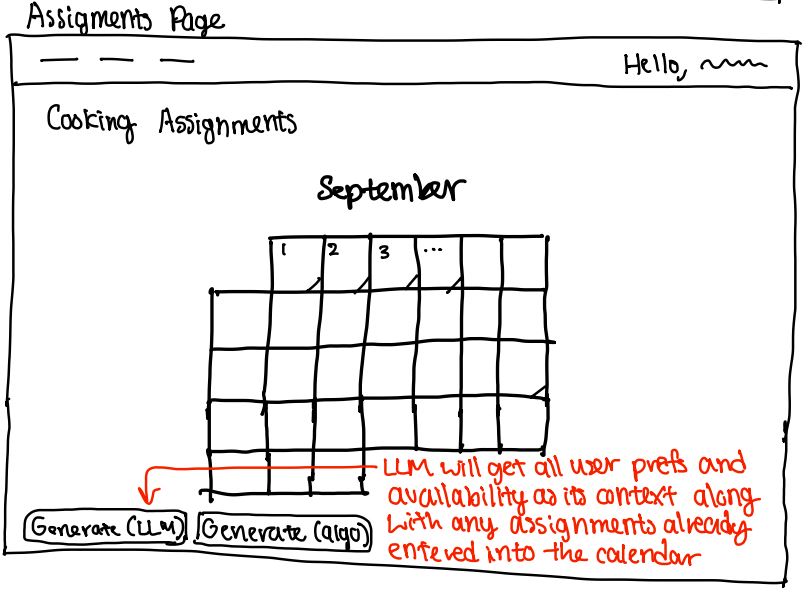 Assigments Page
Hello,
Cooking Assignments
September
1 2 3 ...
LLM will get all user prefs and
availability as its context along
with any assignments already
entered into the calendar
Generate (LLM) Generate (algo)